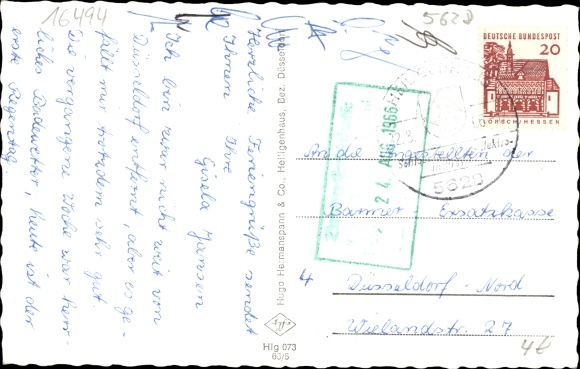 16494
5628
Herzliche Feriengrüße sendet
Ihnen Ihre
Gisela Jansen
Ich bin zwar nicht weit von
Düsseldorf entfernt, aber es ge-
fällt mir trotzdem sehr gut.
Die vergangene Woche war herr-
liches Badewetter, heute ist der
erste Regentag.
Hugo Hermanspann & Co., Heiligenhaus, Bez. Düsseldorf
Hlg 073
60/5
DEUTSCHE BUNDESPOST
20
LORSCH/HESSEN
5628
24. AUG. 1966
An die Angestellten der
Barmer Ersatzkasse
4 Düsseldorf-Nord
Wielandstr. 27
4€